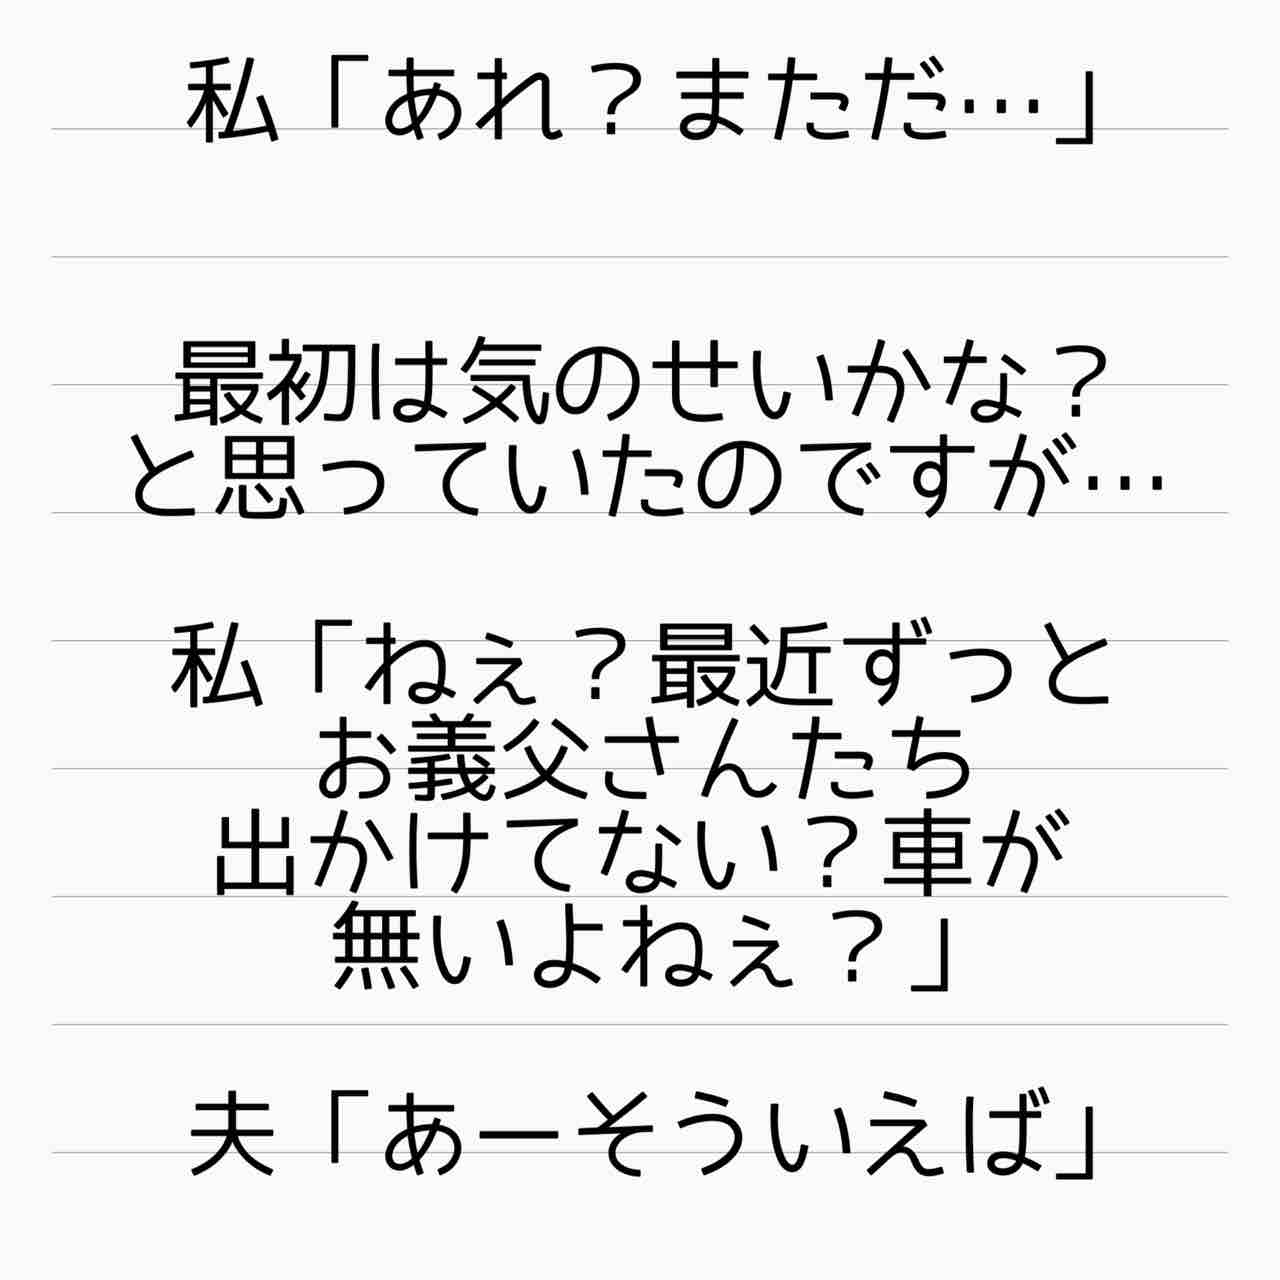 私「あれ？まただ…」
最初は気のせいかな？
と思っていたのですが…
私「ねぇ？最近ずっと
お義父さんたち
出かけてない？車が
無いよねぇ？」
夫「あーそういえば」